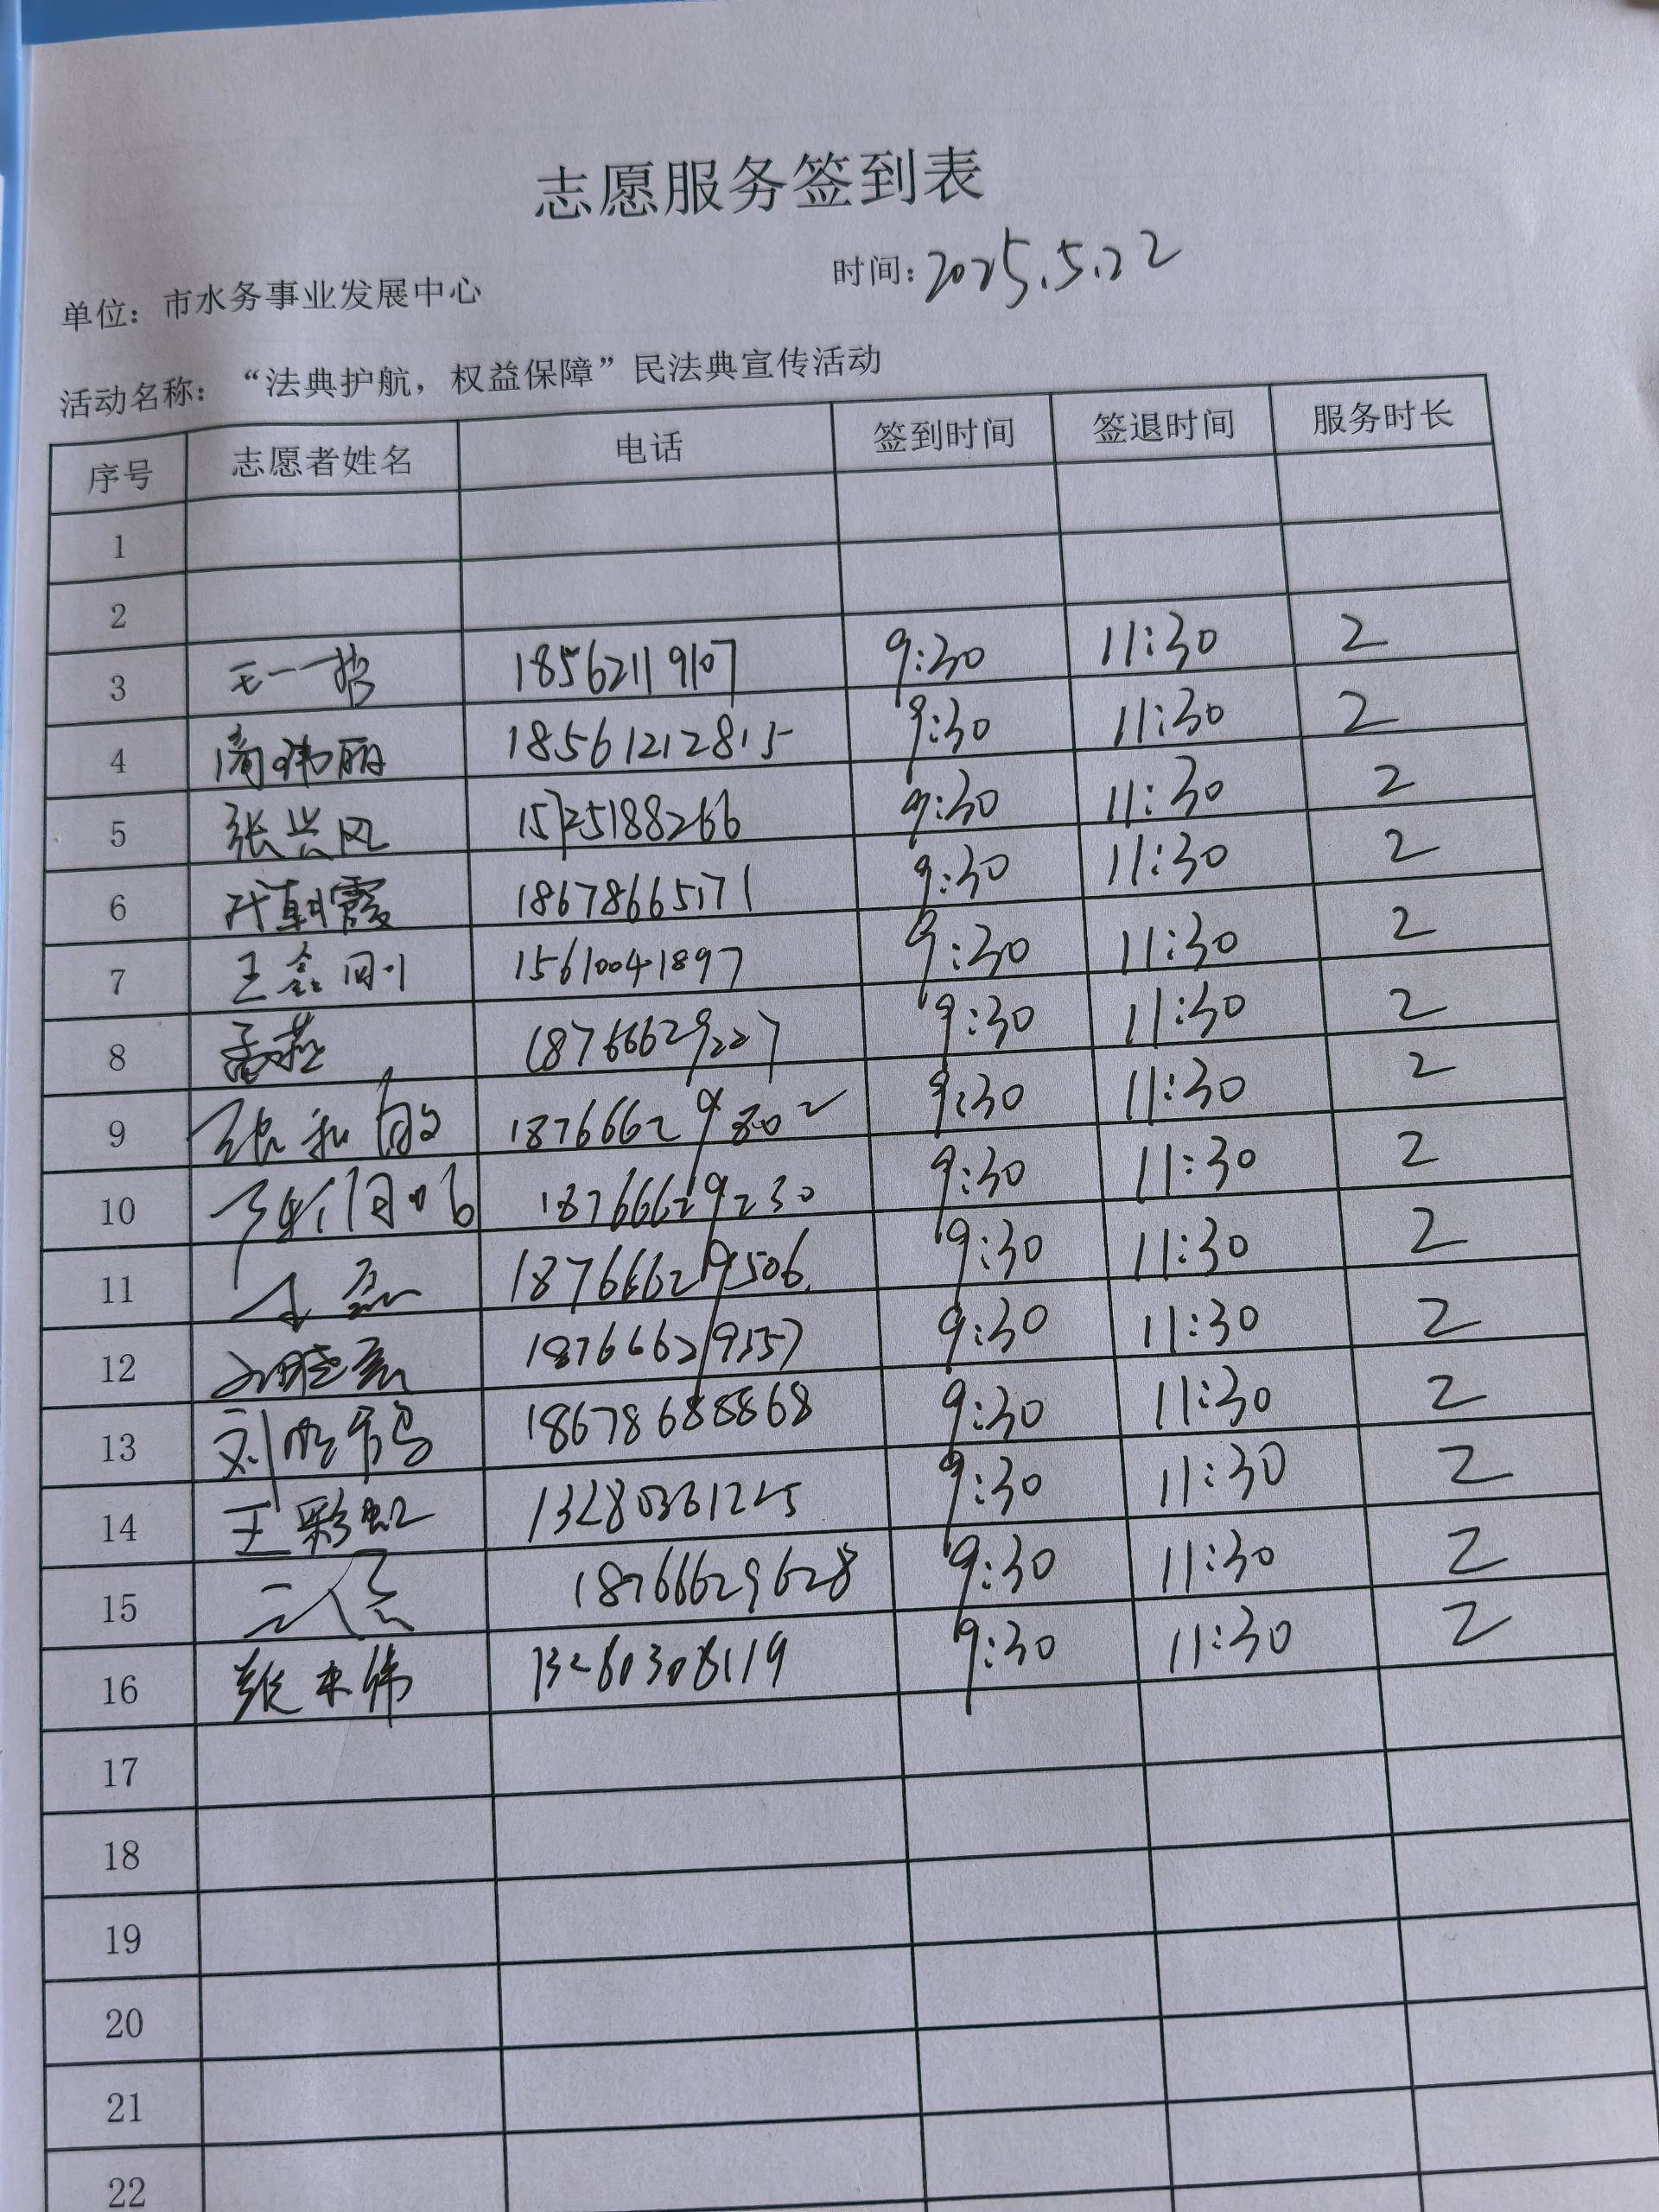 志愿服务签到表
时间：2025.5.22
单位：市水务事业发展中心
活动名称：“法典护航，权益保障”民法典宣传活动
序号 志愿者姓名 电话 签到时间 签退时间 服务时长
1
2
3 18562119107 9:30 11:30 2
4 周晓丽 18561212815 9:30 11:30 2
5 张兴凤 15725188266 9:30 11:30 2
6 代朝霞 18678665171 9:30 11:30 2
7 王鑫刚 15610041897 9:30 11:30 2
8 孟燕 18766629227 9:30 11:30 2
9 18766629802 9:30 11:30 2
10 18766629230 9:30 11:30 2
11 18766629506 9:30 11:30 2
12 18766629557 9:30 11:30 2
13 18678688868 9:30 11:30 2
14 王彩虹 13280361225 9:30 11:30 2
15 18766629628 9:30 11:30 2
16 13280308119 9:30 11:30 2
17
18
19
20
21
22